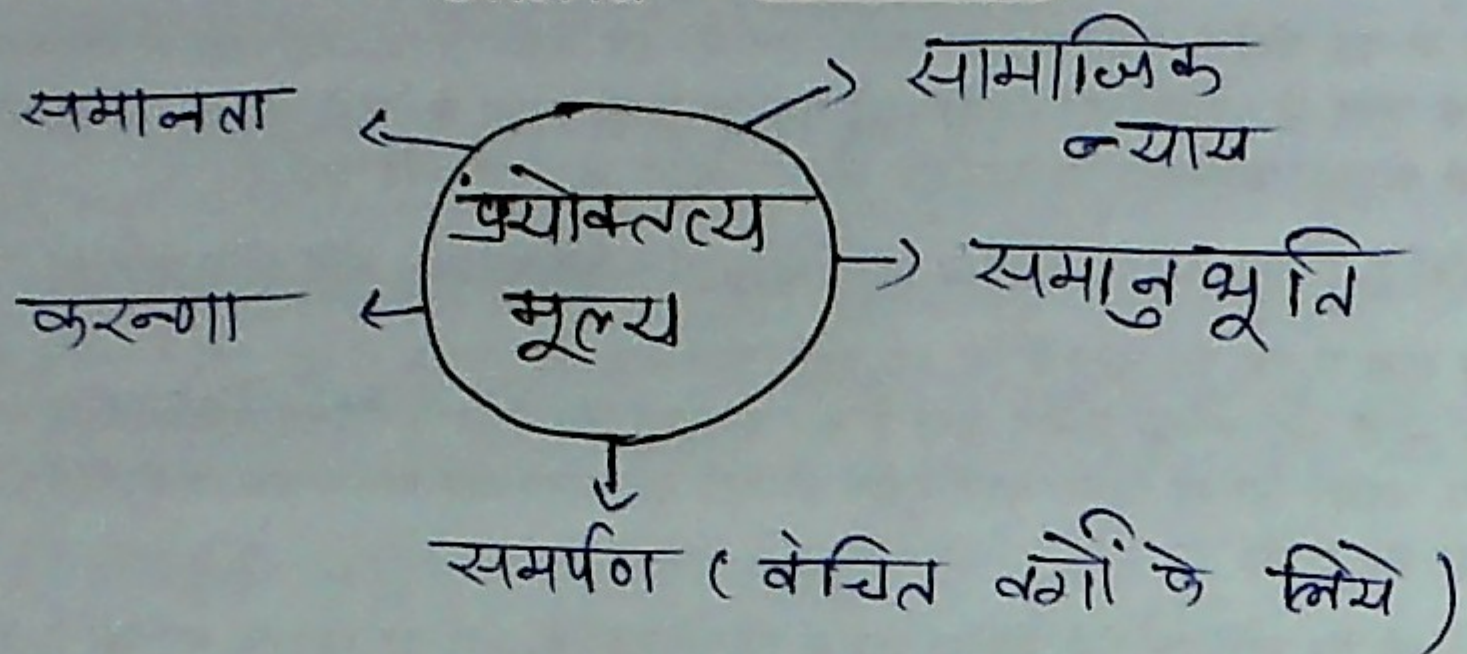 समानता
सामाजिक
न्याय
प्रंयोक्तव्य
मूल्य
करुणा
समानुभूति
समर्पण ( वंचित वर्गों के लिये )